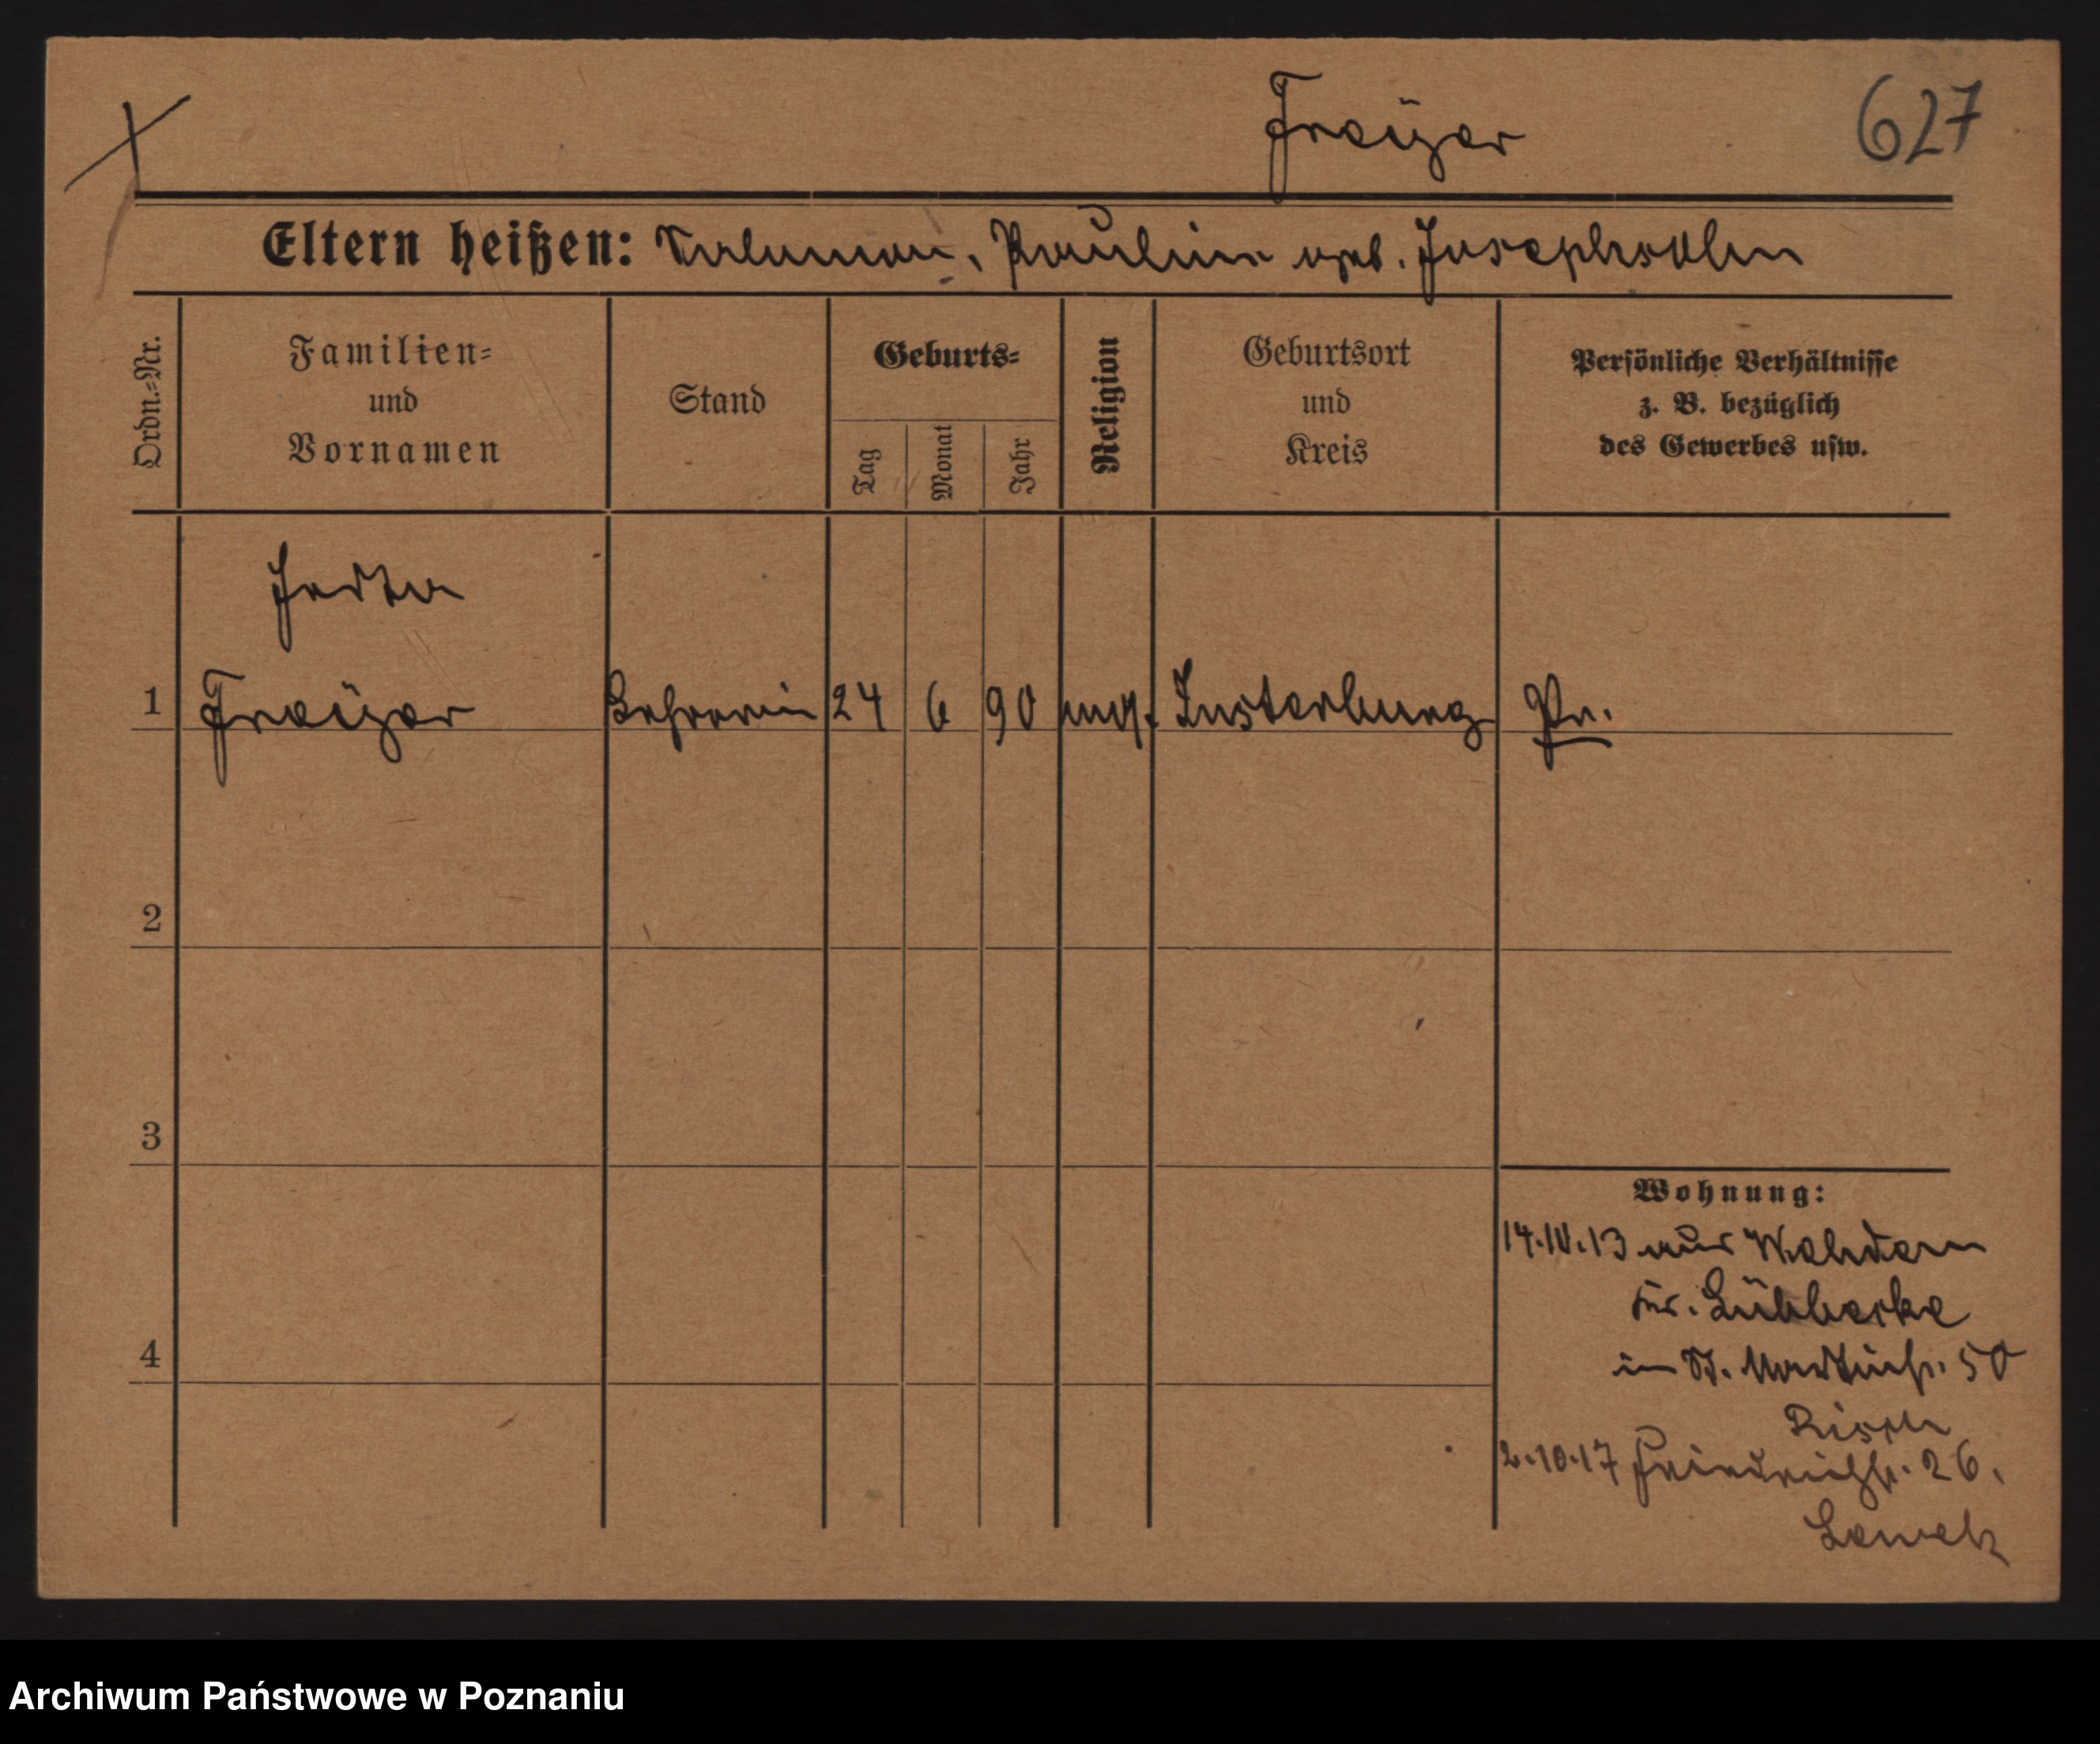 Freÿer 627
Eltern heißen: Salomon, Pauline geb. Josephsohn
Ordn.-Nr.
Familien-
und
Vornamen
Stand
Geburts-
Tag
Monat
Jahr
Religion
Geburtsort
und
Kreis
Persönliche Verhältnisse
z. B. bezüglich
des Gewerbes usw.
1 Freÿer Lehrerin 24 6 90 Insterburg Pr.
2
3
4
Wohnung:
14.IV.13 aus
Kr. Lübbecke
in St. Martinstr. 50
2.10.17 Friedrichstr. 26.
Archiwum Państwowe w Poznaniu